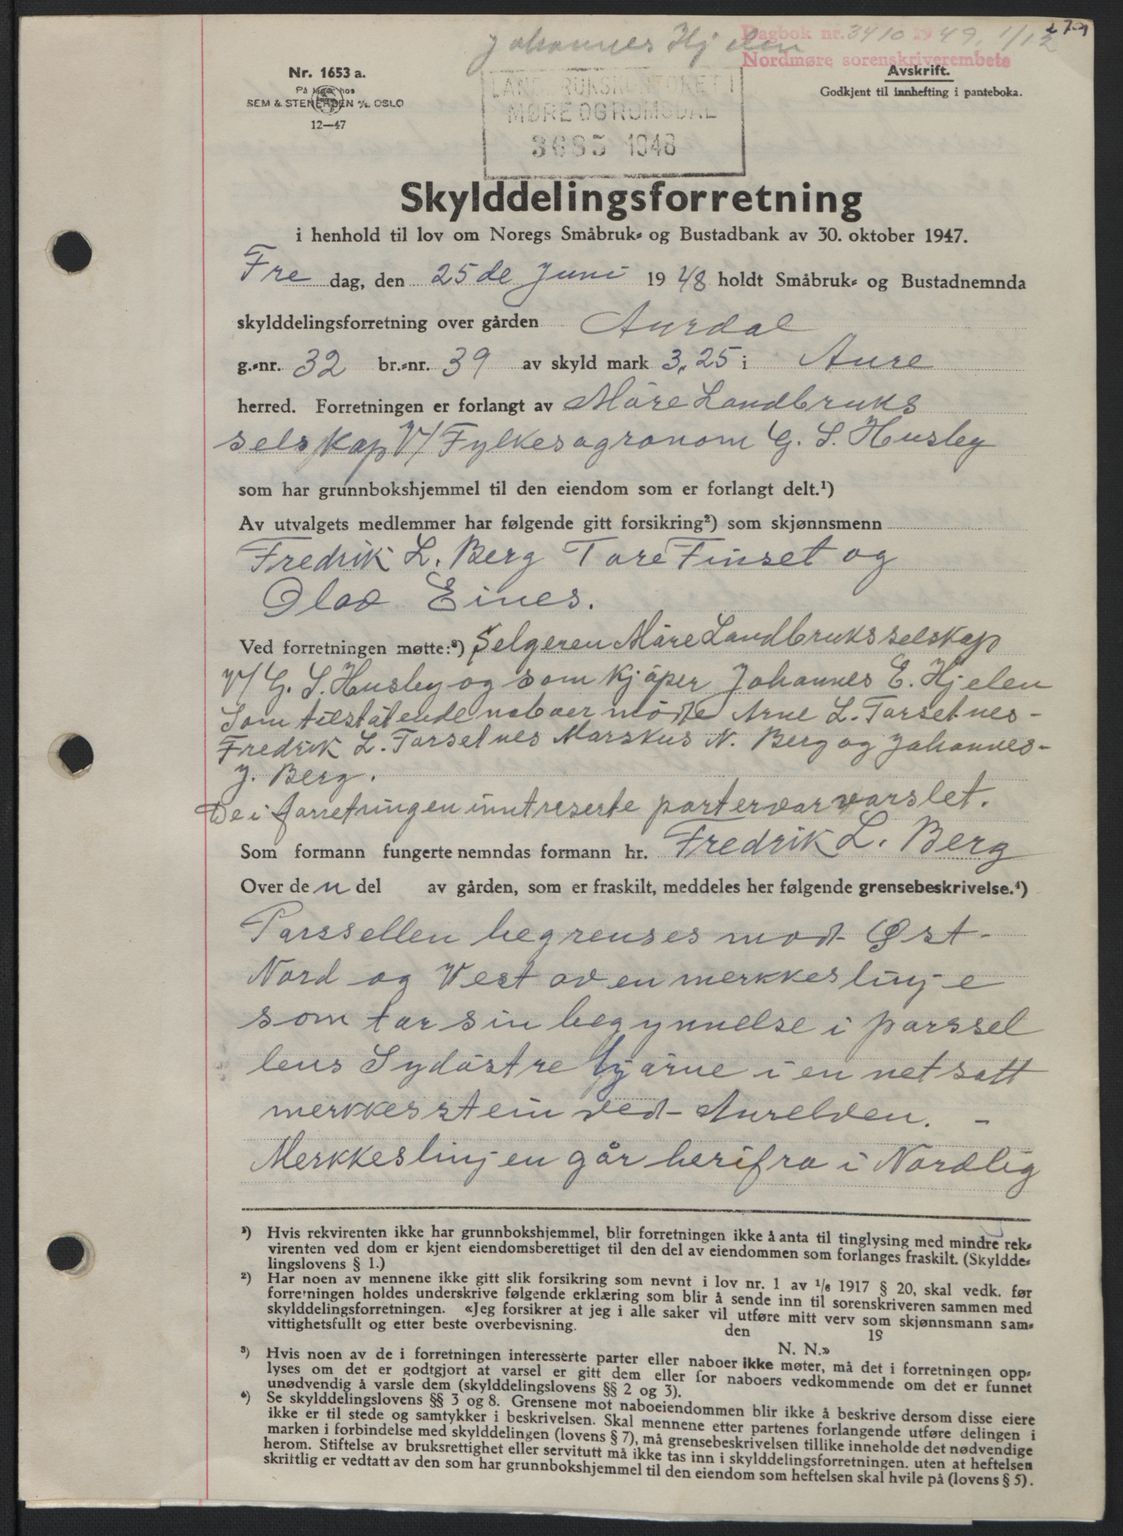 Johannes Hjelen
Dagbok nr. 3410 1949, 1/12
279
Nordmøre sorenskriverembete
Nr. 1653 a.
På lager hos
SEM & STENERSEN A/S, OSLO
12—47
LANDBRUKSKONTORET I
MØRE OG ROMSDAL
3695 1948
Avskrift.
Godkjent til innhefting i panteboka.
Skylddelingsforretning
i henhold til lov om Noregs Småbruk- og Bustadbank av 30. oktober 1947.
Fre dag, den 25 de Juni 1948 holdt Småbruk- og Bustadnemnda
skylddelingsforretning over gården Aurdal
g.-nr. 32 br.-nr. 39 av skyld mark 3,25 i Aure
herred. Forretningen er forlangt av Möre Landbruks
selskap V/ Fylkesagronom G. S. Husby
som har grunnbokshjemmel til den eiendom som er forlangt delt.¹)
Av utvalgets medlemmer har følgende gitt forsikring²) som skjønnsmenn
Fredrik L. Berg Tore Finset og
Olav Eines.
Ved forretningen møtte:³) Selgeren Möre Landbruksselskap
V/ G. S. Husby og som kjöper Johannes E. Hjelen
Som tilstötende naboer mödte Arne L. Torsetnes-
Fredrik L. Torsetnes Marskus N. Berg og Johannes-
J. Berg.
De i forretningen inntreserte parter var varslet.
Som formann fungerte nemndas formann hr. Fredrik L. Berg
Over den del av gården, som er fraskilt, meddeles her følgende grensebeskrivelse.⁴)
Parssellen begrenses mot Øst-
Nord og Vest av en merkkeslinje
som tar sin begynnelse i parssel
lens Sydöstre hjörne i en netsatt
merkkesstein ved Aurelven. -
Merkkeslinjen går herifra i Nordlig
¹) Hvis rekvirenten ikke har grunnbokshjemmel, blir forretningen ikke å anta til tinglysing med mindre rek-
virenten ved dom er kjent eiendomsberettiget til den del av eiendommen som forlanges fraskilt. (Skyldde-
lingslovens § 1.)
²) Har noen av mennene ikke gitt slik forsikring som nevnt i lov nr. 1 av 1/6 1917 § 20, skal vedk. før
forretningen holdes underskrive følgende erklæring som blir å sende inn til sorenskriveren sammen med
skylddelingsforretningen. «Jeg forsikrer at jeg i alle saker vil utføre mitt verv som skjønnsmann sam-
vittighetsfullt og etter beste overbevisning.
den 19
N. N.»
³) Hvis noen av de i forretningen interesserte parter eller naboer ikke møter, må det i forretningen opp-
lyses om det er godtgjort at varsel er gitt dem eller for naboers vedkommende om det er funnet
unødvendig å varsle dem (skylddelingslovens §§ 2 og 3).
⁴) Se skylddelingslovens §§ 3 og 8. Grensene mot naboeiendommen blir ikke å beskrive dersom disse eiere
ikke er til stede og samtykker i beskrivelsen. Skal mennene etter partenes forlangende utføre delingen i
marken i forbindelse med skylddelingen (lovens § 7), må grensebeskrivelsen tillike inneholde det nødvendige
herom. Stiftelse av bruksrettighet eller servitutt må ikke tas inn i skylddelingsforretningen. uten at heftelsen
skriftlig er vedtatt av den som har grunnbokshjemmel til den eiendom som heftelsen skal hvile på (lovens § 5).